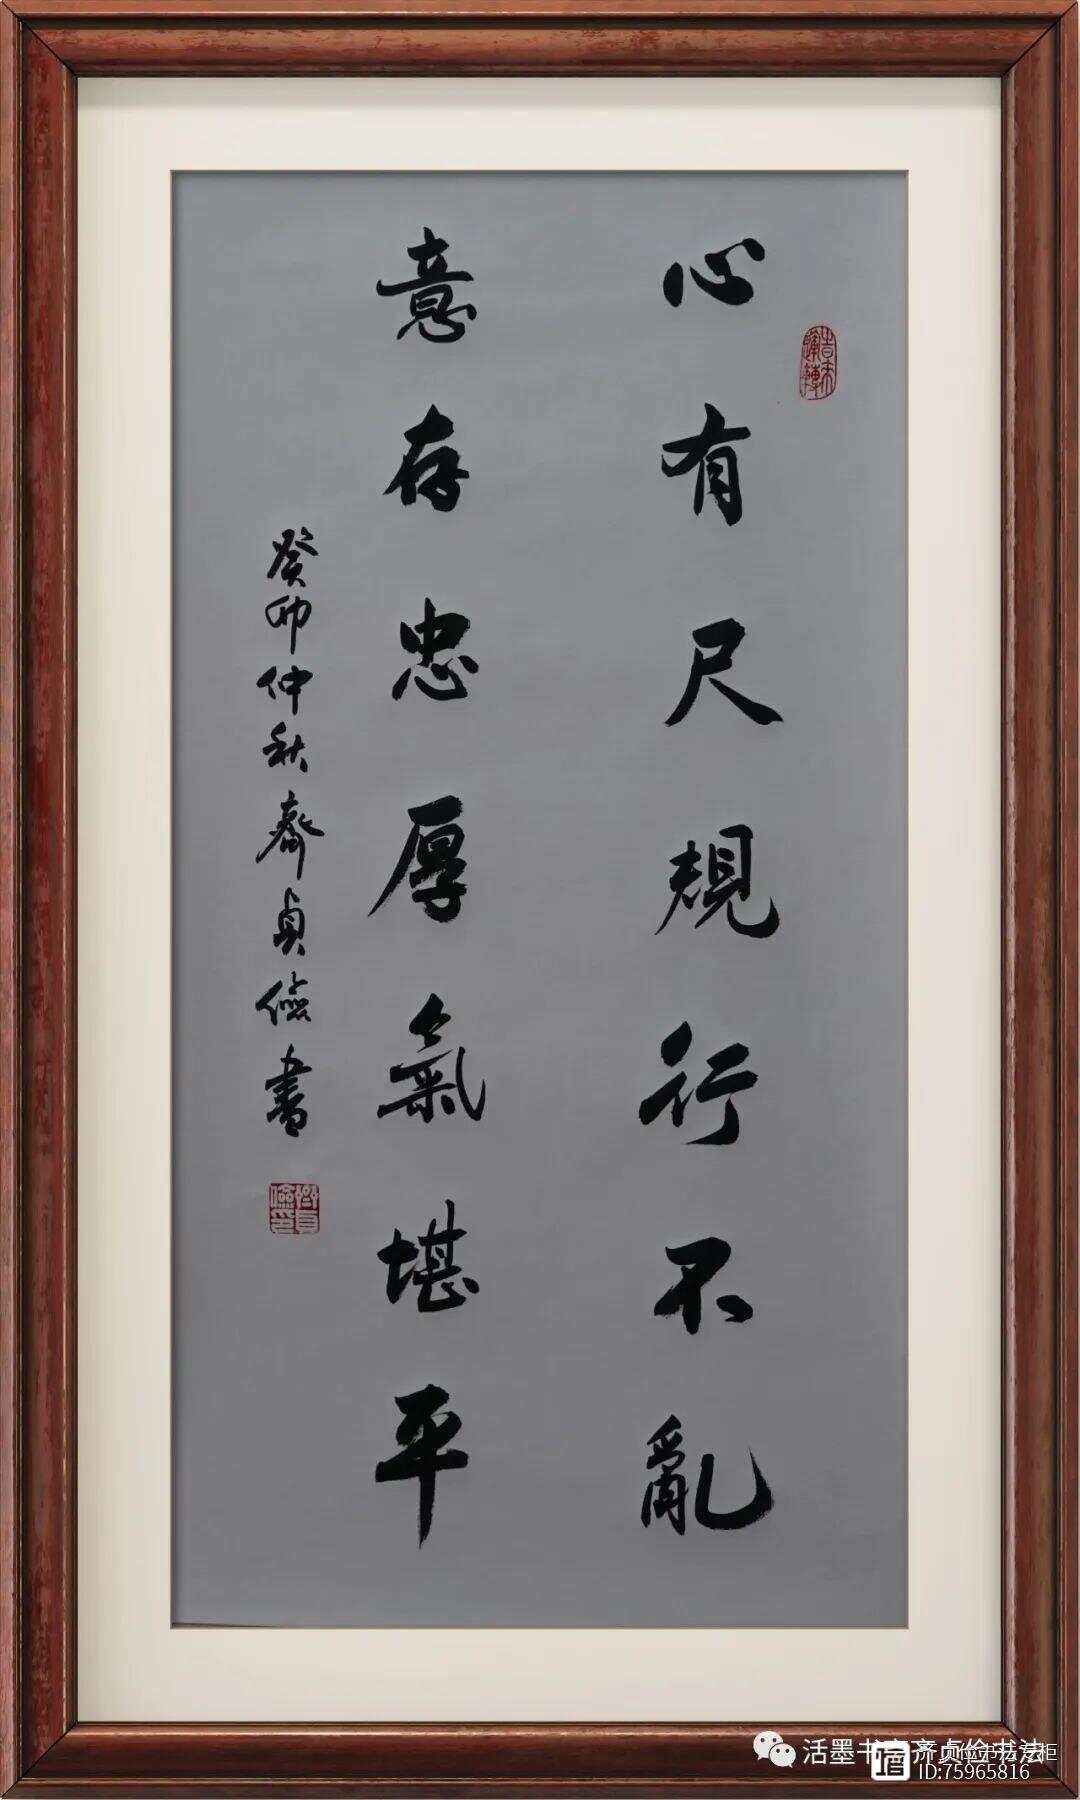 心有尺規行不亂
意存忠厚氣堪平
癸卯仲秋齊貞儉書
活墨书
齐贞俭书法
ID:75965816